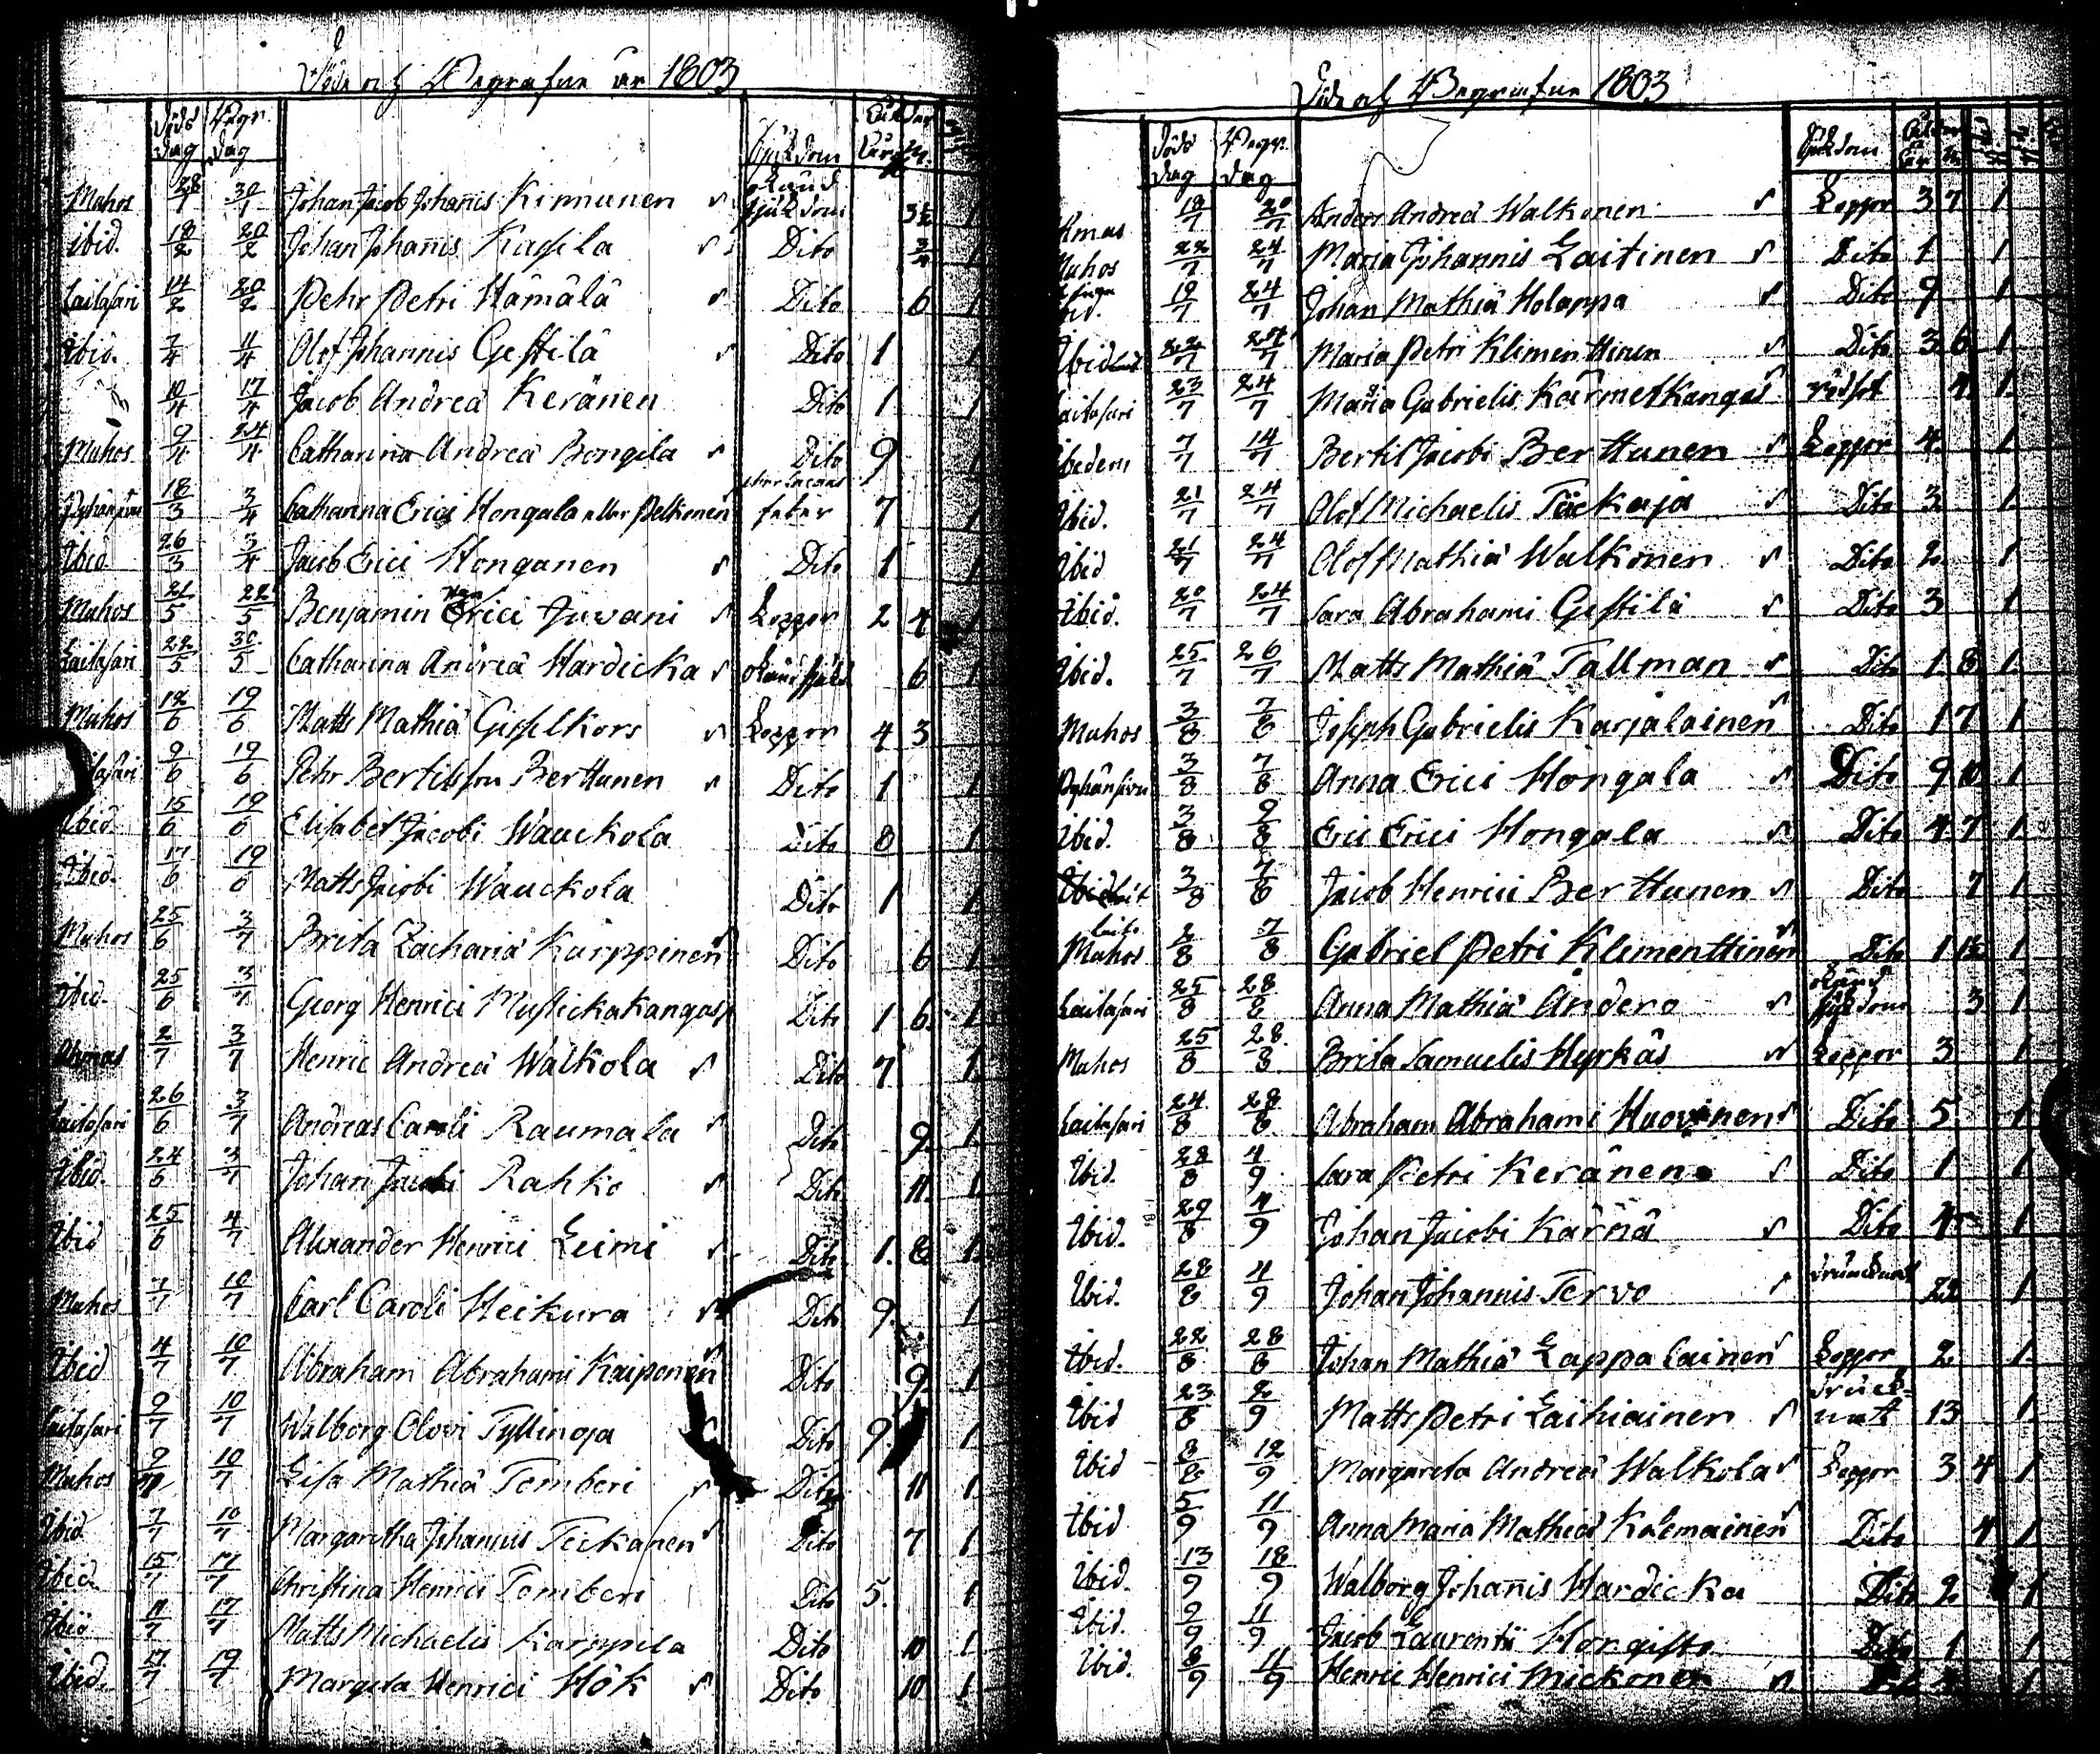 Döde och Begrafne år 1803
Döds dag Begr. dag Sjukdom Ålder
Muhos 28/1 30/1 Johan Jacob Johannis Kinnunen okänd sjukdom 3½ 1
ibid. 18/2 20/2 Johan Johannis Kasila Dito 3/4 1
Laitasari 14/2 20/2 Pehr Petri Hämälä Dito 6 1
Ibid. 7/4 11/4 Olof Johannis Gestilä Dito 1 1
10/4 17/4 Jacob Andreä Keränen Dito 1 1
Muhos 9/4 24/4 Catharina Andreä Bongila Dito 9 1
18/3 3/4 Catharina Erici Hongala eller Pelkonen feber 7 1
Ibid. 26/3 3/4 Jacob Erici Honganen Dito 1 1
Muhos 21/5 22/5 Benjamin Erici Juvani Koppor 2 4 1
Laitasari 22/5 30/5 Catharina Andreä Hardicka okänd sjukd. 6 1
Muhos 12/6 19/6 Matts Mathiä Gisselkors Koppor 4 3
9/6 19/6 Pehr Bertilsson Berttunen Dito 1 1
Ibid. 15/6 19/6 Elisabet Jacobi Wauckola Dito 8 1
Ibid. 17/6 19/6 Matts Jacobi Wauckola Dito 1 1
Muhos 25/6 3/7 Brita Zachariä Karppinen Dito 6 1
Ibid. 25/6 3/7 Georg Henrici Mustickakangas Dito 1 6 1
Ahmas 2/7 3/7 Henric Andreä Walkola Dito 7 1
Laitasari 26/6 3/7 Andreas Caroli Raumala Dito 9 1
Ibid. 24/6 3/7 Johan Jacobi Rahko Dito 11 1
Ibid 25/6 4/7 Alexander Henrici Leimi Dito 1 8 1
Muhos 7/7 10/7 Carl Caroli Heikura Dito 9 1
Ibid 4/7 10/7 Abraham Abrahami Kaiponen Dito 9 1
Laitasari 9/7 10/7 Walborg Olovi Tyllinoja Dito 9 1
Muhos 9/7 10/7 Lisa Mathiä Temberi Dito 11 1
Ibid 7/7 10/7 Margaretha Johannis Teckanen Dito 7 1
Ibid. 15/7 17/7 Christina Henrici Temberi Dito 5 1
Ibid 11/7 17/7 Matts Michaelis Karppila Dito 10 1
Ibid. 17/7 19/7 Margeta Henrici Hök Dito 10 1
Döde och Begrafne 1803
Döds dag Begr. dag Sjukdom Ålder
Ahmas 18/7 20/7 Anders Andreä Walkonen Koppor 3 7 1
Muhos 22/7 24/7 Maria Johannis Laitinen Dito 1 1
19/7 24/7 Johan Mathiä Holappa Dito 9 1
Ibid 22/7 24/7 Maria Petri Klimenttinen Dito 3 6 1
Laitasari 23/7 24/7 Maria Gabrielis Kärmetkangas rödsot 1
Ibidem 7/7 14/7 Bertil Jacobi Berttunen Koppor 4 1
Ibid. 21/7 24/7 Olof Michaelis Töckaja Dito 3 1
Ibid 21/7 24/7 Olof Mathiä Walkonen Dito 2 1
Ibid. 20/7 24/7 Sara Abrahami Gestilä Dito 3 1
Ibid. 25/7 26/7 Matts Mathiä Tallman Dito 1 8 1
Muhos 3/8 7/8 Joseph Gabrielis Karjalainen Dito 1 7 1
3/8 7/8 Anna Erici Hongala Dito 9 10 1
Ibid. 3/8 9/8 Eric Erici Hongala Dito 4 7 1
3/8 7/8 Jacob Henrici Berttunen Dito 7 1
Muhos 2/8 7/8 Gabriel Petri Klimenttinen Dito 1 1½ 1
Laitasari 25/8 28/8 Anna Mathiä Andero okänd sjukdom 3 1
Muhos 25/8 28/8 Brita Samuelis Hyrkäs Koppor 3 1
Laitasari 24/8 28/8 Abraham Abrahami Huovinen Dito 5 1
Ibid. 28/8 4/9 Sara Petri Keränen Dito 1 1
Ibid. 29/8 4/9 Johan Jacobi Kärnä Dito 4 1
Ibid. 28/8 4/9 Johan Johannis Tervo 1
Ibid. 22/8 28/8 Johan Mathiä Lappalainen Koppor 2 1
Ibid 23/8 2/9 Matts Petri Laihiainen 13 1
Ibid 12/9 Margareta Andreä Walkola Koppor 3 4 1
Ibid 5/9 11/9 Anna Maria Mathiä Kolemainen Dito 4 1
Ibid. 13/9 18/9 Walborg Johannis Hardicka Dito 2 1
Ibid. 9/9 11/9 Jacob Laurentii Hongisto Dito 1 1
Ibid. 8/9 11/9 Henric Henrici Mickonen 1